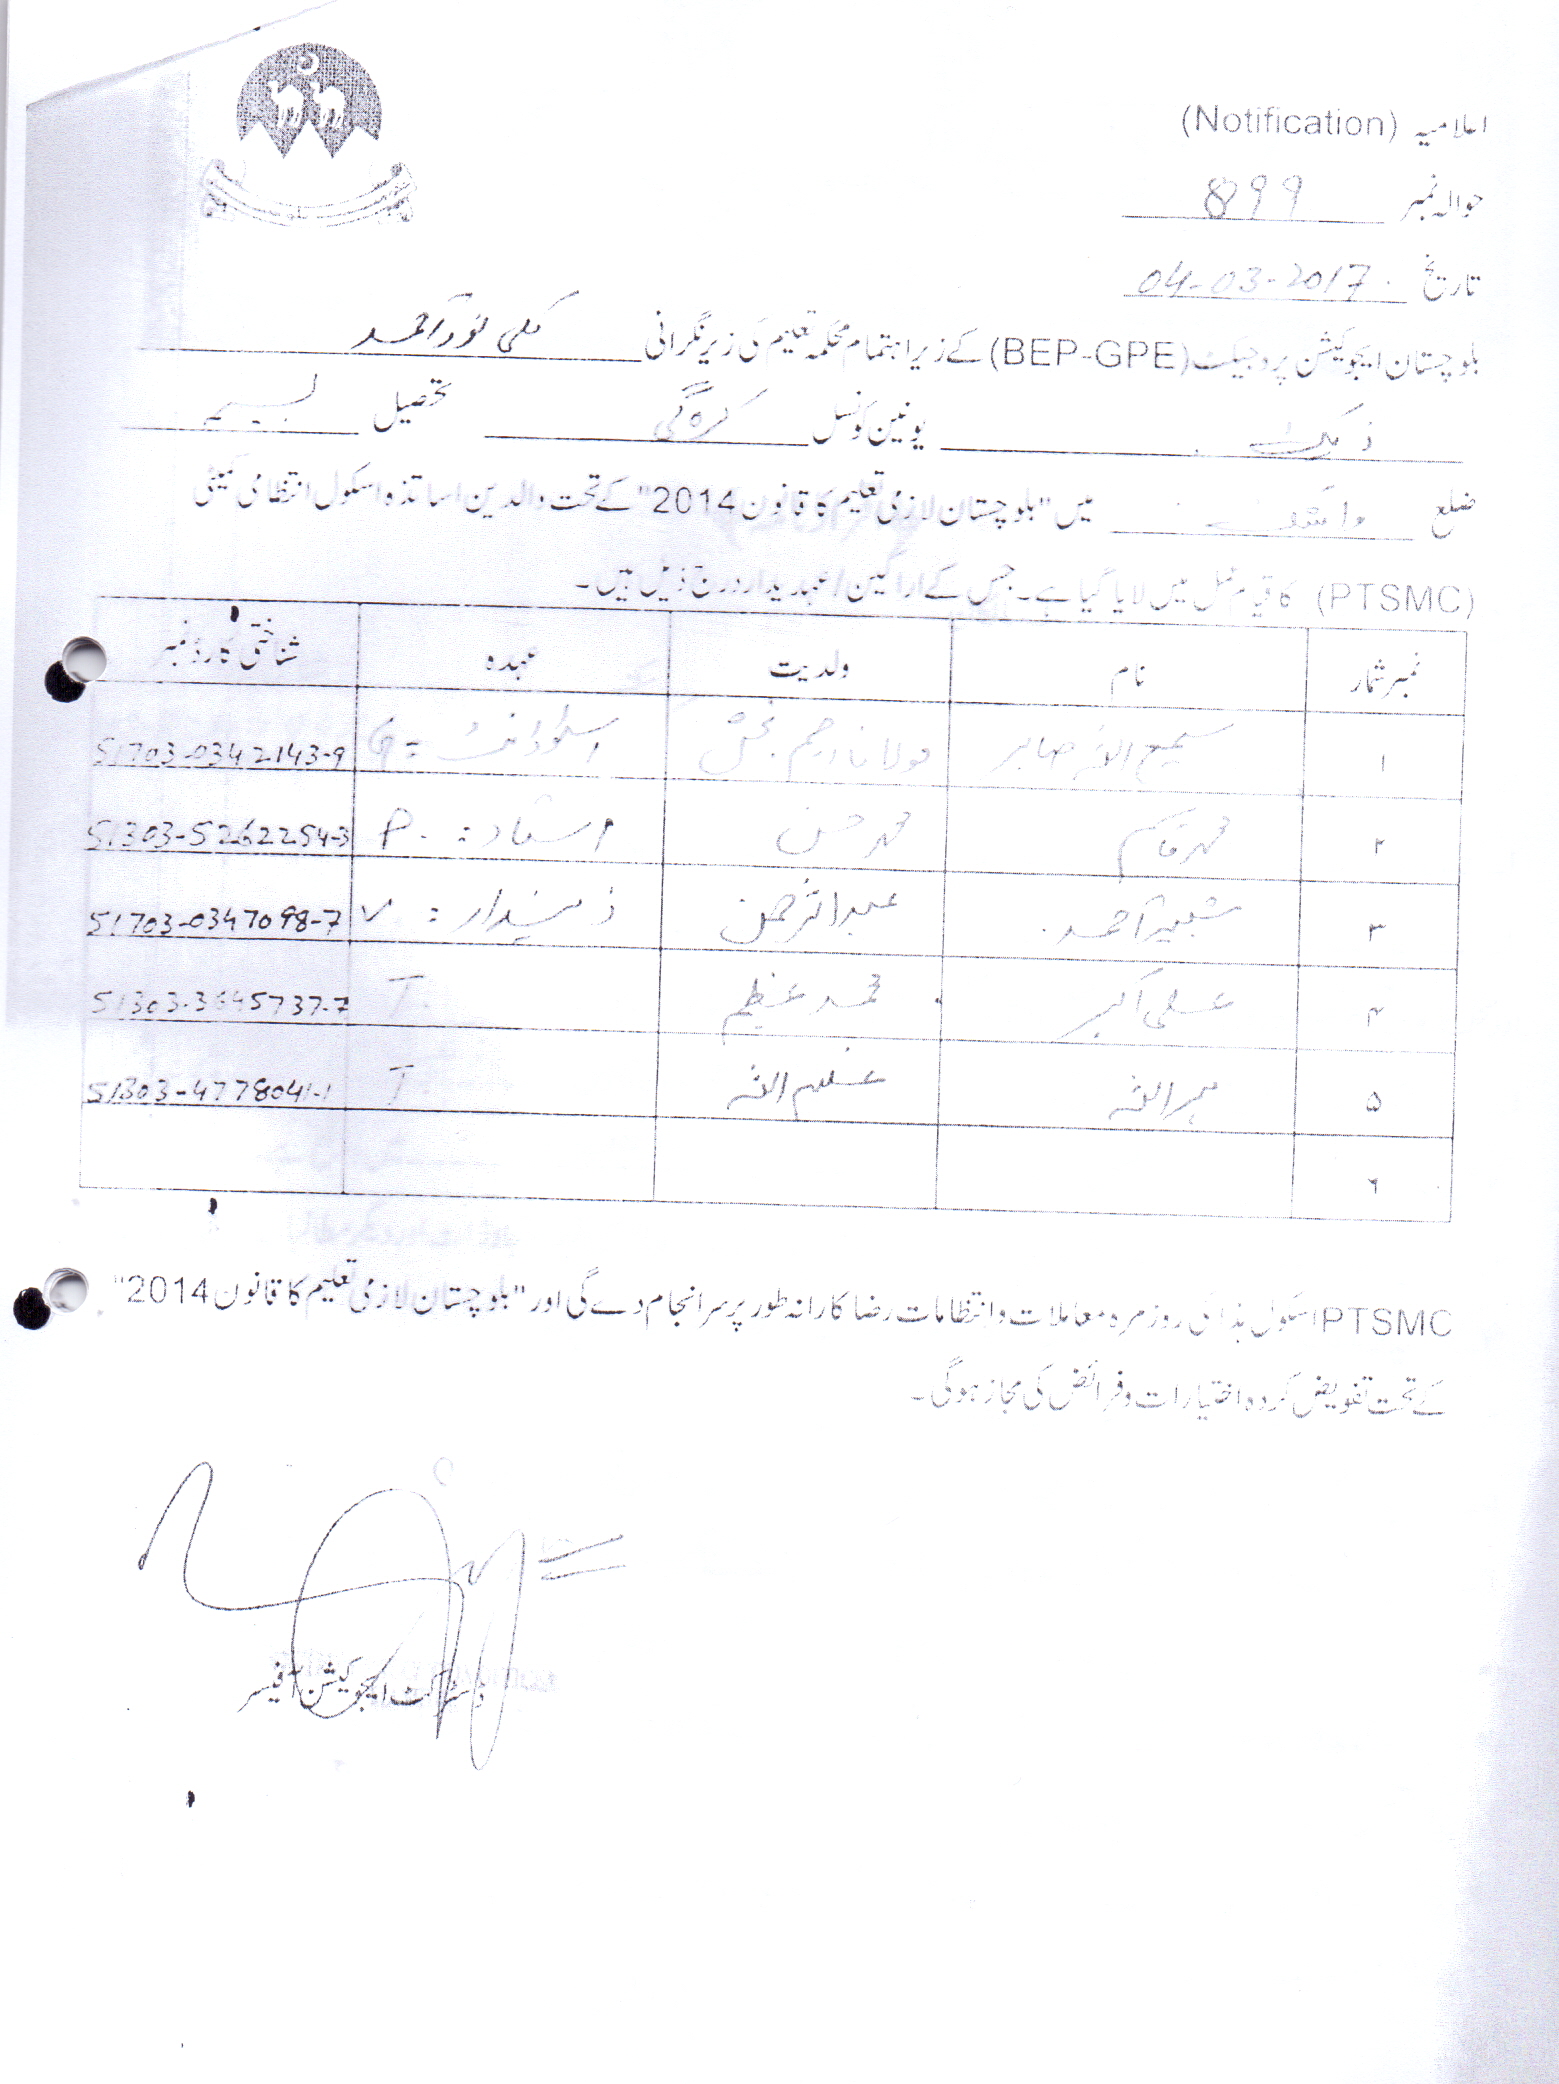 اعلامیہ (Notification)
حوالہ نمبر 899
تاریخ 04-03-2017
بلوچستان ایجوکیشن پروجیکٹ (BEP-GPE) کے زیر اہتمام محکمہ تعلیم کی زیر نگرانی کلی نور احمد
یونین کونسل تحصیل بسیمہ
ضلع واشک میں "بلوچستان لازمی تعلیم کا قانون 2014" کے تحت والدین اساتذہ اسکول انتظامی کمیٹی
(PTSMC) کا قیام عمل میں لایا گیا ہے۔ جس کے اراکین / عہدیدار درج ذیل ہیں۔
نمبر شمار نام ولدیت عہدہ شناختی کارڈ نمبر
۱ سمیع اللہ صابر مولانا رحیم بخش G 51703-0342143-9
۲ محمد قاسم محمد حسن استاد : P 51303-5262254-3
۳ شبیر احمد عبدالرحمن زمیندار : V 51703-0347098-7
۴ علی اکبر محمد عظیم T 51303-3645737-7
۵ مہر اللہ غلام اللہ T 51303-4778041-1
۶
PTSMC اسکول ہذا کی روزمرہ معاملات و انتظامات رضاکارانہ طور پر سرانجام دے گی اور "بلوچستان لازمی تعلیم کا قانون 2014"
کے تحت تفویض کردہ اختیارات و فرائض کی مجاز ہوگی۔
ڈسٹرکٹ ایجوکیشن آفیسر